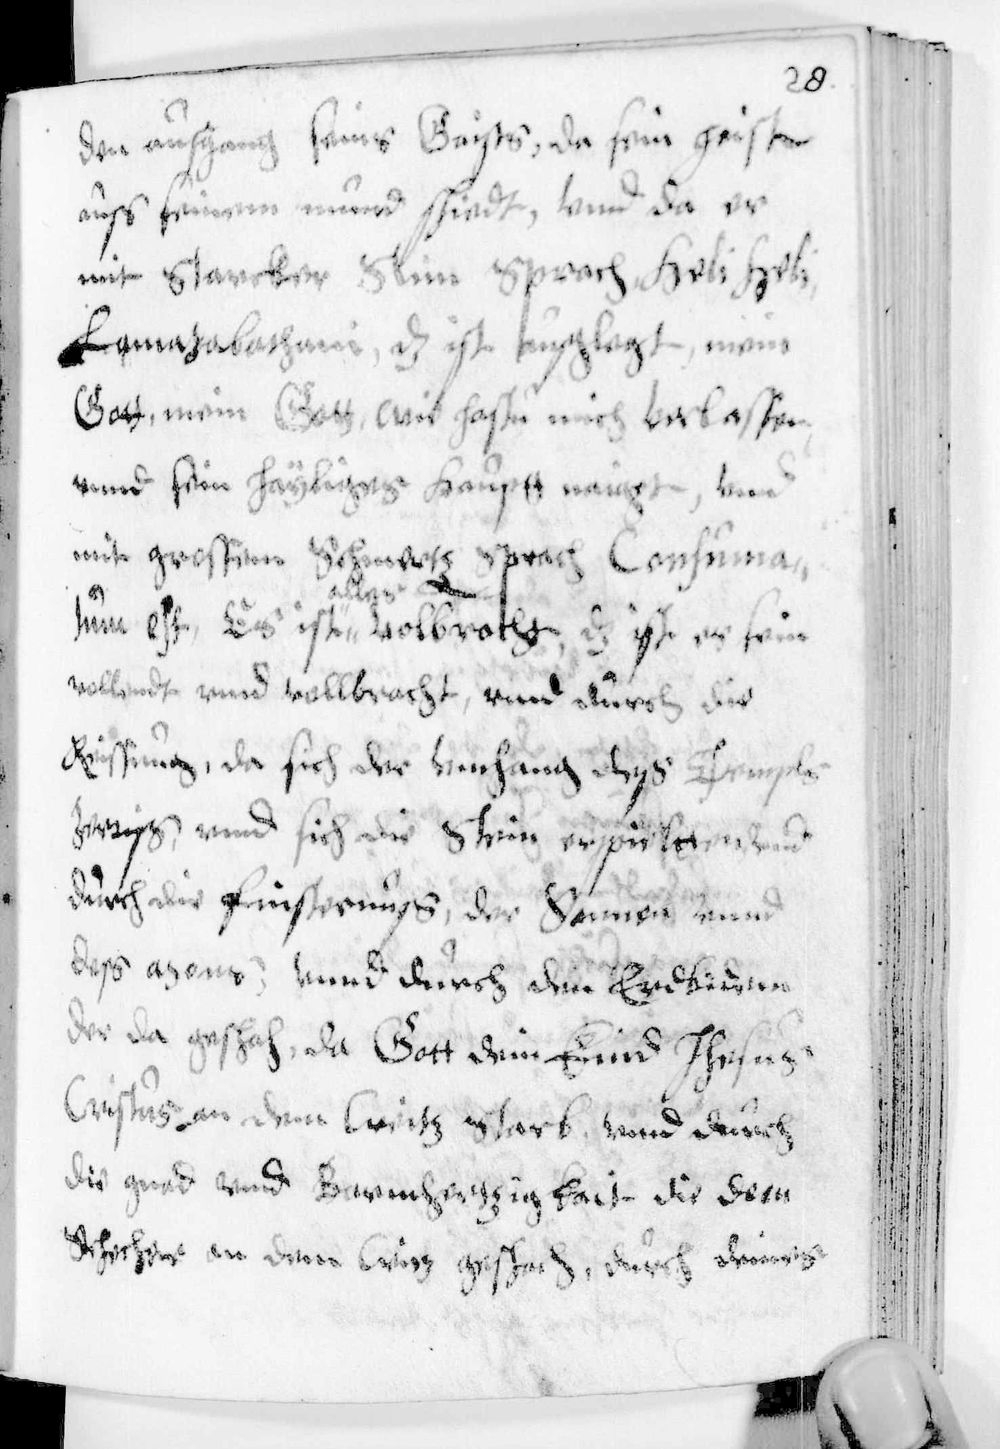 28.
den außgang seins Geists, da sein geist
auss seinem mund schiedt, vnnd da er
mit Starcker Stim Sprach, Heli Heli,
Lamazabathani, dz ist außglegt, mein
Gott, mein Gott, wie hastu mich verlassen,
vnnd sein hayliges Haupt naigt, vnd
mit grossem Schmertz Sprach Consuma„
alles
tum est, Es ist „ volbracht, dz ist es sein
vollendt vnnd vollbracht, vnnd durch die
Reissung, da sich der Vmhang deß Tempels
zerriß, vnnd sich die Stein vnnd
durch die finsternuß, der Sonnen vnnd
deß mons, vnnd durch den Erdbidem
der da geschah, da Gott dein Kind Jhesus
Cristus an dem Creitz Starb, vnnd durch
die gnad vnnd Barmhertzigkait die dem
Schecher an dem Creitz geschach, durch deines